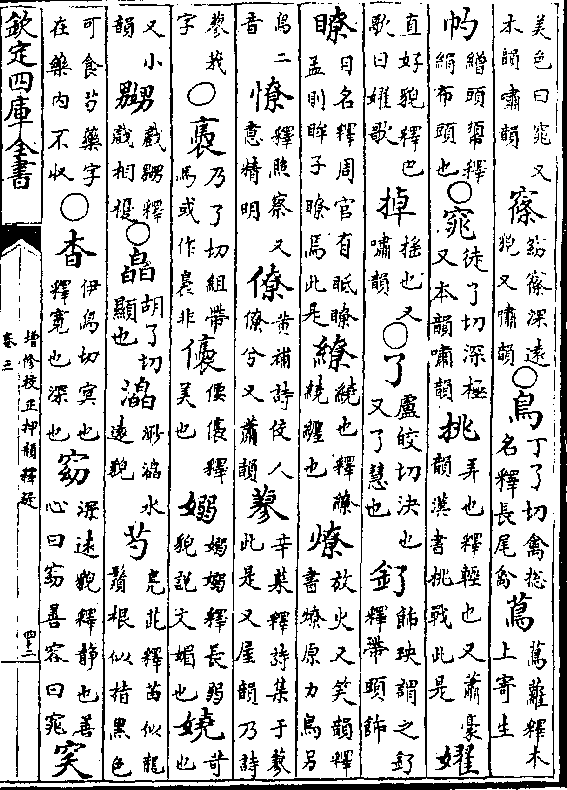 美色曰窕又本韻嘯韻窱窈窱深遠貌又嘯韻○鳥丁了切禽總名釋長尾禽蔦蔦蘿釋木上寄生
繒頭釋絹布頭也○窕徒了切深極又本韻嘯韻挑弄也釋輕也又蕭豪韻漢書挑戰此是嬥
直好貌釋巴歌曰嬥歌掉搖也又嘯韻○了盧皎切決也又了慧也釕飾玦謂之釕釋帶頭飾
瞭目名釋周官有眡瞭孟則眸子瞭焉此是繚繞也釋繚繞纒也燎放火又笑韻釋書燎原力鳥另
鳥二音憭釋照察又意精明僚黃補詩佼人僚兮又蕭韻蓼辛菜釋詩集于蓼此是又屋韻乃詩
蓼莪字○褭乃了切組帶馬或作裊非㒟偠㒟釋美也嫋嫋嫋釋長弱貌說文媚也嬈苛也
又小韻嬲戲嬲釋戲相擾○皛胡了切顯也㵿渺㵿水遠貌芍鳧茈釋苗似龍鬚根似指黑色
可食芍藥字在藥內不收○杳伊鳥切冥也釋寬也深也窈深遠貌釋靜也善心曰窈善容曰窕窔
欽定四庫全書
增修校正押韻釋疑
卷三
四十二